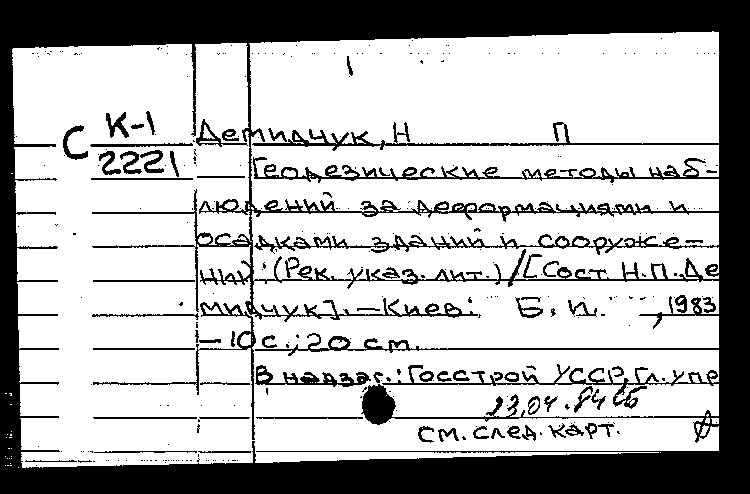 С К-1
2221
Демидчук, Н П
Геодезические методы наб-
людений за деформациями и
осадками зданий и сооруже-
ний: (Рек. указ. лит.) / [Сост Н.П. Де
мидчук]. — Киев: Б. и. , 1983
— 10 с.; 20 см.
В надзаг.: Госстрой УССР, Гл. упр
23.04.84
см. след. карт.